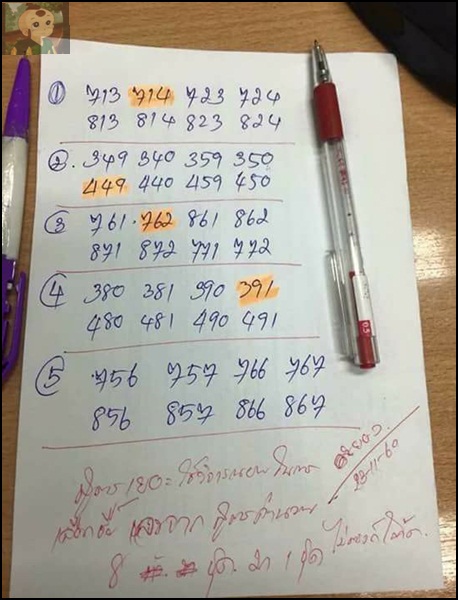 ① 713 714 723 724
813 814 823 824
②. 349 340 359 350
449 440 459 450
③ 761. 762 861 862
871 872 771 772
④ 380 381 390 391
480 481 490 491
⑤ .756 757 766 767
856 857 866 867
สูตรเยอะ ใช้วิจารณญาณ ในการ
สูตรคำนวณ
8 ชุด มา 1 ชุด